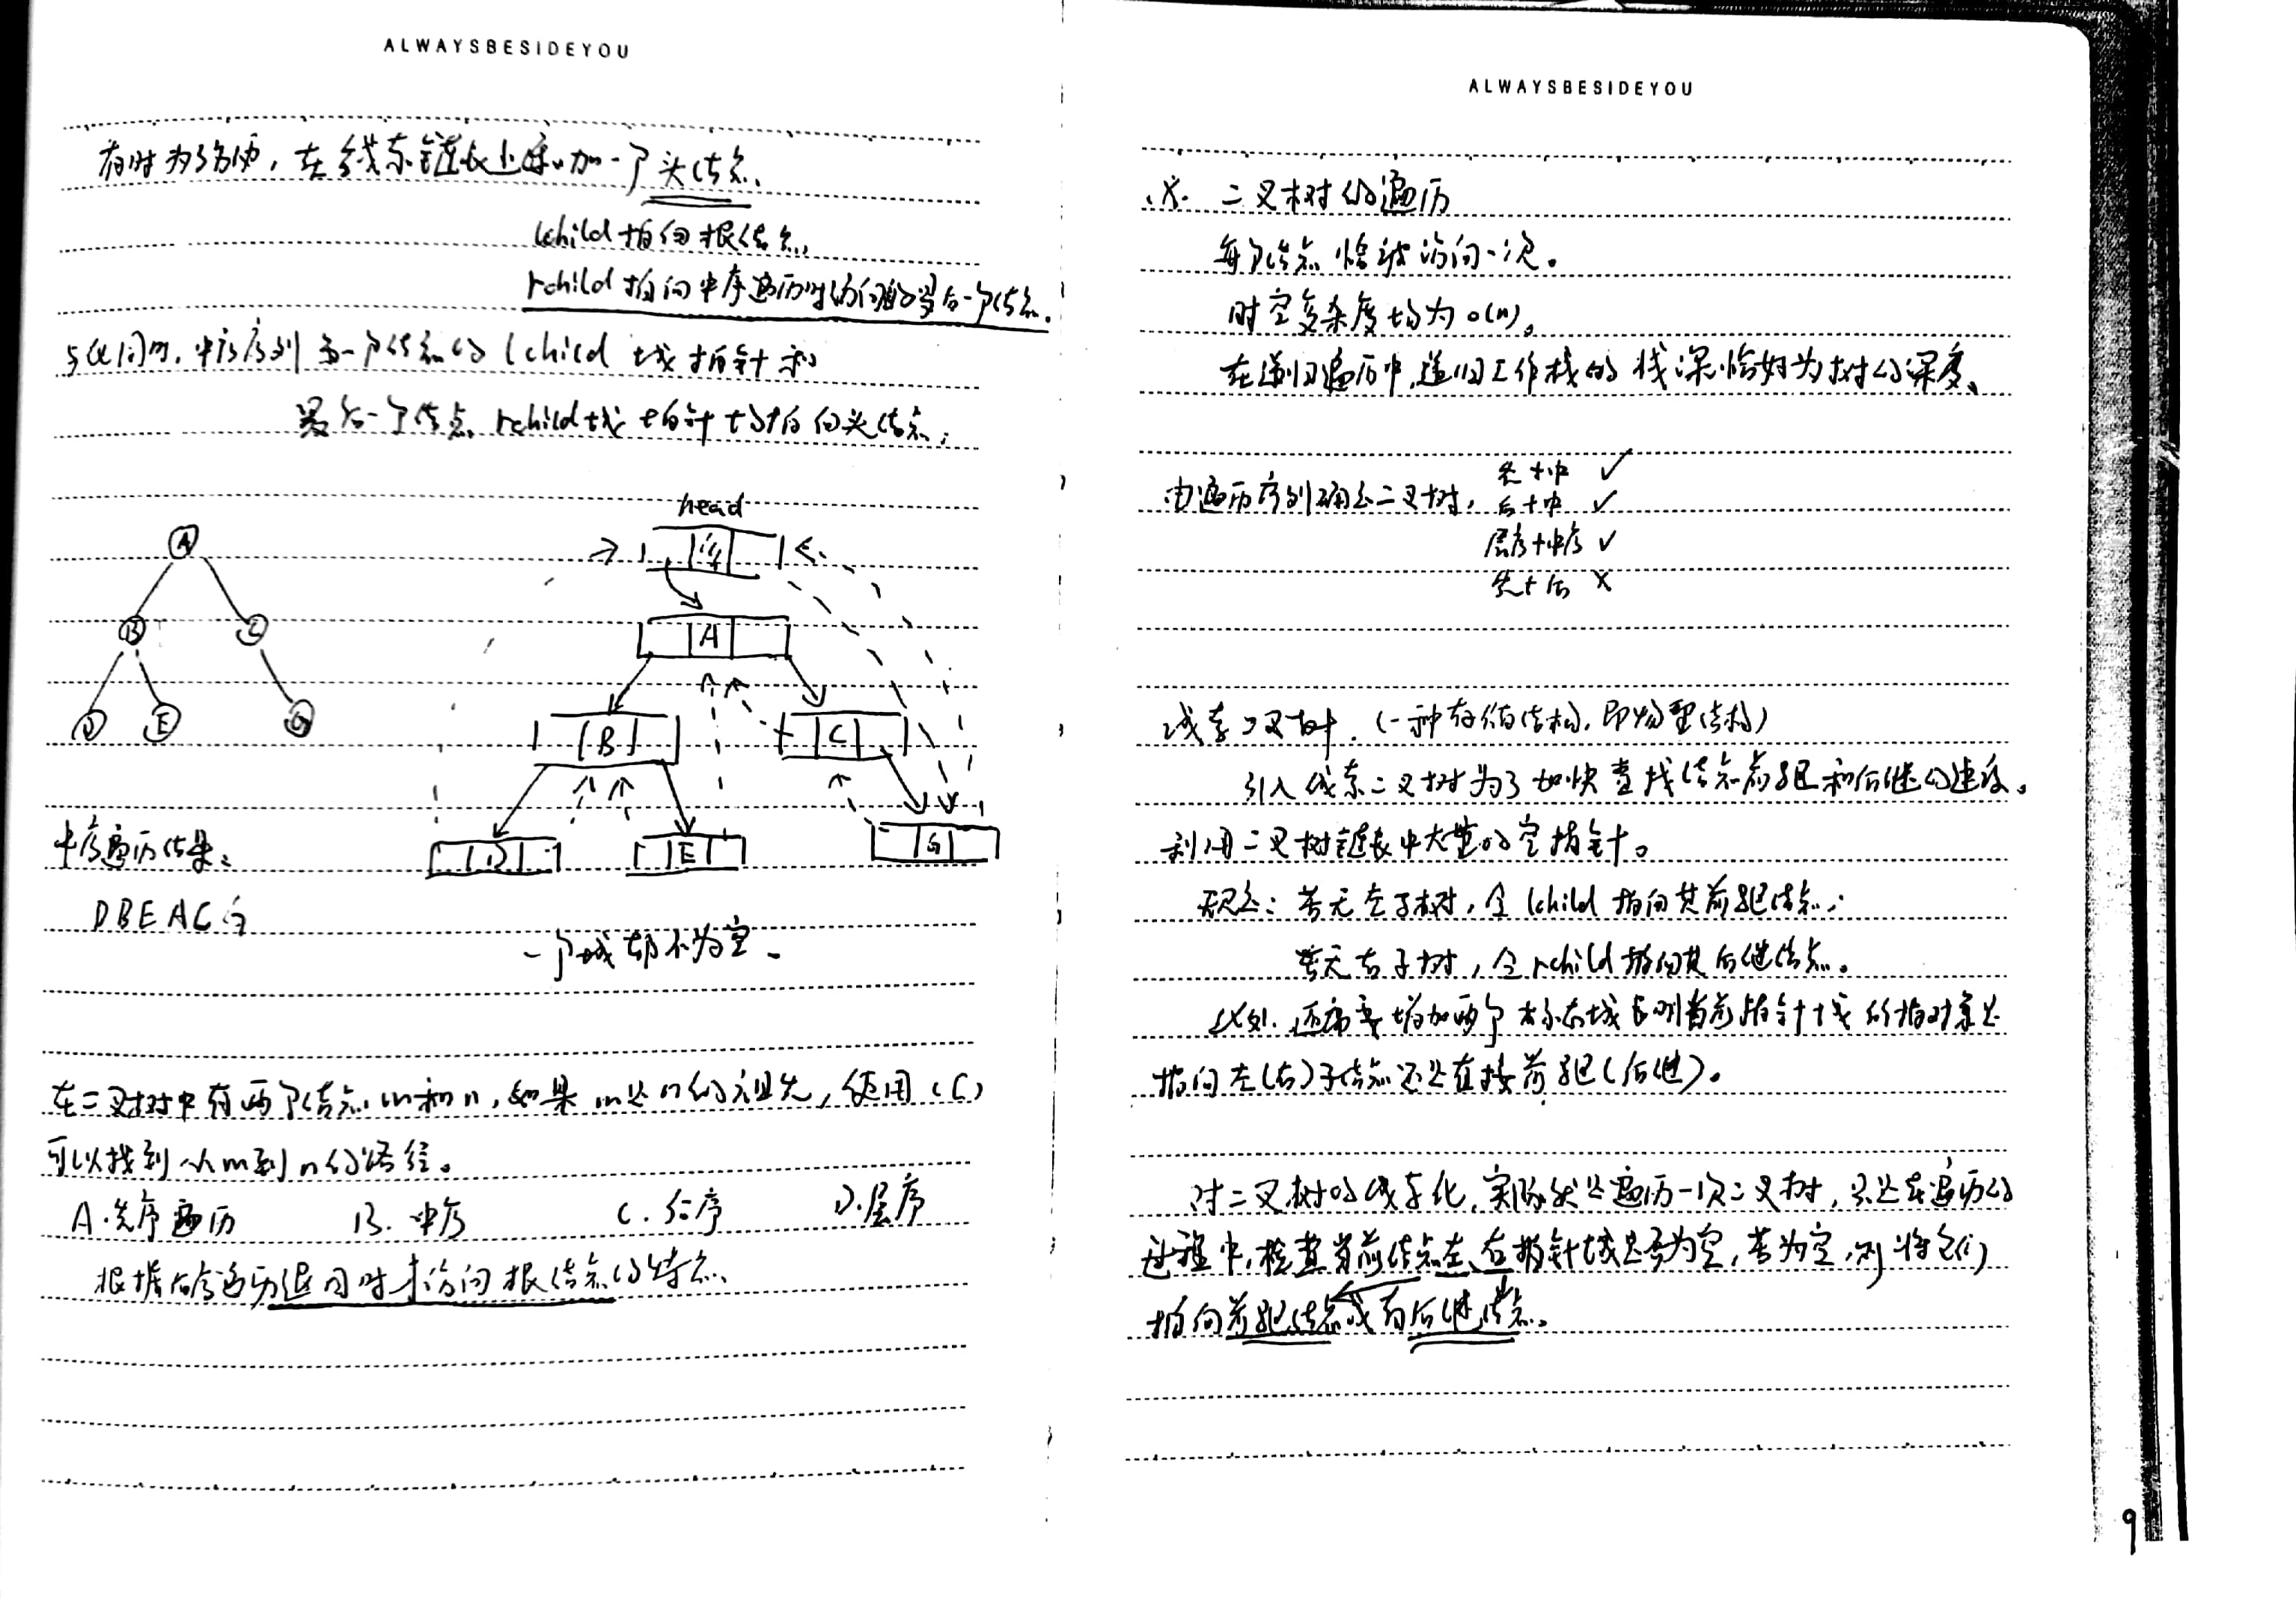 ALWAYSBESIDEYOU
有时为了方便，在线索链表上添加一个头结点、
lchild指向根结点，
rchild指向中序遍历时访问的最后一个结点．
与此同时．中序序列第一个结点的lchild域指针和
最后一个结点rchild域指针均指向头结点；
head
A
A
B
C
B
C
D
E
G
D
E
G
中序遍历结果：
DBEACG
一个域都不为空．
在二叉树中有两个结点m和n，如果m是n的祖先，使用（C）
可以找到从m到n的路径。
A．先序遍历 B．中序 C．后序 D．层序
根据后序遍历退回时才访问根结点的特点、
ALWAYSBESIDEYOU
二叉树的遍历
每个结点恰被访问一次。
时空复杂度均为O(n)。
在递归遍历中，递归工作栈的栈深恰好为树的深度、
由遍历序列确定二叉树， 先+中 ✓
后+中 ✓
层序+中序 ✓
先+后 ×
线索二叉树．（一种存储结构．即物理结构）
引入线索二叉树为了加快查找结点前驱和后继的速度。
利用二叉树链表中大量的空指针。
规定：若无左子树，令lchild指向其前驱结点；
若无右子树，令rchild指向其后继结点。
还需要增加两个标志域表明当前指针域所指对象是
指向左（右）子结点还是直接前驱（后继）。
对二叉树的线索化，实际就是遍历一次二叉树，只是在遍历的
过程中，检查当前结点左、右指针域是否为空，若为空，则将它们
指向前驱结点或者后继结点。
9